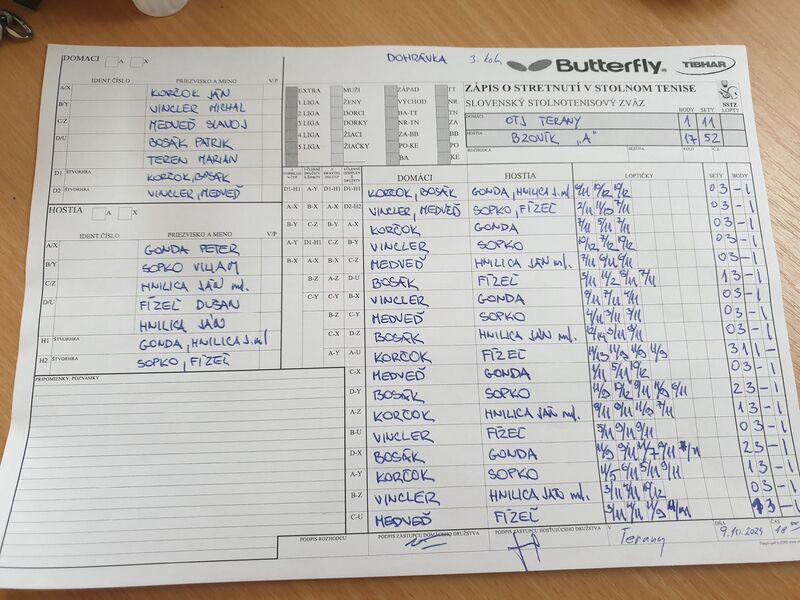 DOHRÁVKA 3. kolo
Butterfly. TIBHAR
DOMÁCI A X
IDENT.ČÍSLO PRIEZVISKO A MENO V/P
A/X KORČOK JÁN
B/Y VINCLER MICHAL
C/Z MEDVEĎ SLAVOJ
D/U BOSÁK PATRIK
TEREN MARIAN
D1 ŠTVORHRA KORČOK, BOSÁK
D2 ŠTVORHRA VINCLER, MEDVEĎ
HOSTIA A X
IDENT.ČÍSLO PRIEZVISKO A MENO V/P
A/X GONDA PETER
B/Y SOPKO VILIAM
C/Z HNILICA JÁN ml.
D/U FÍZEĽ DUŠAN
HNILICA JÁN
H1 ŠTVORHRA GONDA, HNILICA J.ml
H2 ŠTVORHRA SOPKO, FÍZEĽ
PRIPOMIENKY, POZNÁMKY
EXTRA MUŽI ZÁPAD TT
1.LIGA ŽENY VÝCHOD NR
2.LIGA DORCI BA-TT TN
3.LIGA DORKY NR-TN ZA
4.LIGA ŽIACI ZA-BB BB
5.LIGA ŽIAČKY PO-KE PO
BA KE
ZÁPIS O STRETNUTÍ V STOLNOM TENISE
SLOVENSKÝ STOLNOTENISOVÝ ZVÄZ SSTZ
BODY SETY LOPTY
DOMÁCI OTJ TERANY 1 11
HOSTIA BZOVÍK "A" 17 52
ROZHODCA SEZÓNA KOLO Č.Z
DOMÁCI HOSTIA LOPTIČKY SETY BODY
D1-H1 A-Y D1-H1 D1-H1 KORČOK, BOSÁK GONDA, HNILICA J.ml 03 -1
A-X B-X A-X D2-H2 VINCLER, MEDVEĎ SOPKO, FÍZEĽ 2/11 11/13 7/11 03 -1
B-Y C-Z B-Y A-X KORČOK GONDA 7/11 5/11 7/11 03 -1
D1-H1 C-Z B-Y VINCLER SOPKO 10/12 7/12 10/12 03 -1
C-Z MEDVEĎ HNILICA JÁN ml. 7/11 9/11 9/11 03 -1
D-U BOSÁK FÍZEĽ 13 -1
B-X VINCLER GONDA 9/11 7/11 4/11 03 -1
C-Y MEDVEĎ SOPKO 4/11 3/11 7/11 03 -1
D-Z BOSÁK HNILICA JÁN ml. 03 -1
A-U KORČOK FÍZEĽ 31 1-
C-X MEDVEĎ GONDA 1/11 5/11 10/12 03 -1
D-Y BOSÁK SOPKO 23 -1
A-Z KORČOK HNILICA JÁN ml. 9/11 9/11 11/9 7/11 13 -1
B-U VINCLER FÍZEĽ 5/11 9/11 9/11 03 -1
D-X BOSÁK GONDA 23 -1
A-Y KORČOK SOPKO 11/5 6/11 5/11 9/11 13 -1
B-Z VINCLER HNILICA JÁN ml. 3/11 4/11 10/12 03 -1
C-U MEDVEĎ FÍZEĽ 13 -1
PODPIS ROZHODCU PODPIS ZÁSTUPCU DOMÁCEHO DRUŽSTVA PODPIS ZÁSTUPCU HOSŤUJÚCEHO DRUŽSTVA V Terany DŇA ČAS